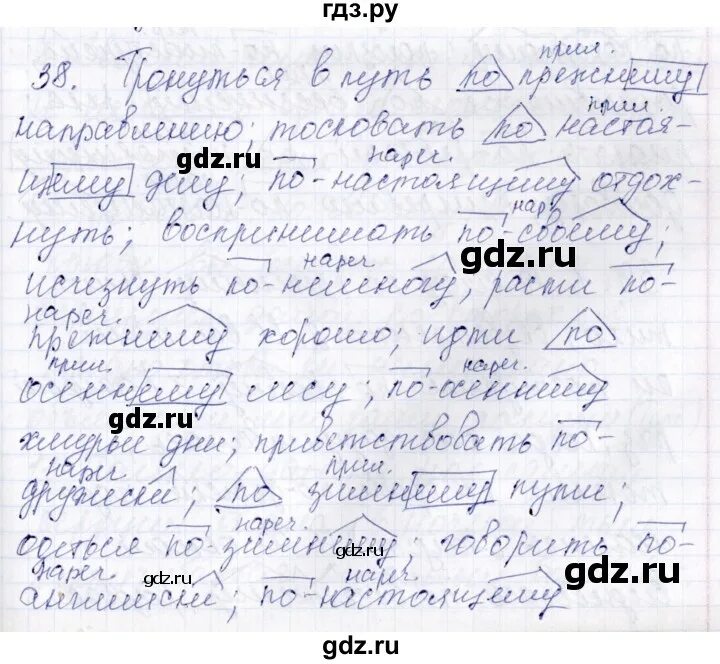 гдз.ру
прил.
38. Тронуться в путь по прежнему
прил.
направлению; тосковать по настоя-
gdz.ru нареч.
щему делу; по-настоящему отдох-
нар.
нуть; воспринимать по-своему;
gdz.ru
нареч
исчезнуть по-немногу, расти по-
нареч.
прежнему хорошо; идти по
прил. нареч.
осеннему лесу; по-осеннему
gdz.ru
хмурые дни; приветствовать по-
нареч прил.
дружески; по зимнему пути;
нареч. gdz.ru
одеться по-зимнему; говорить по-
нареч. gdz.ru нареч. gdz.ru
английски; по-настоящему
gdz.ru